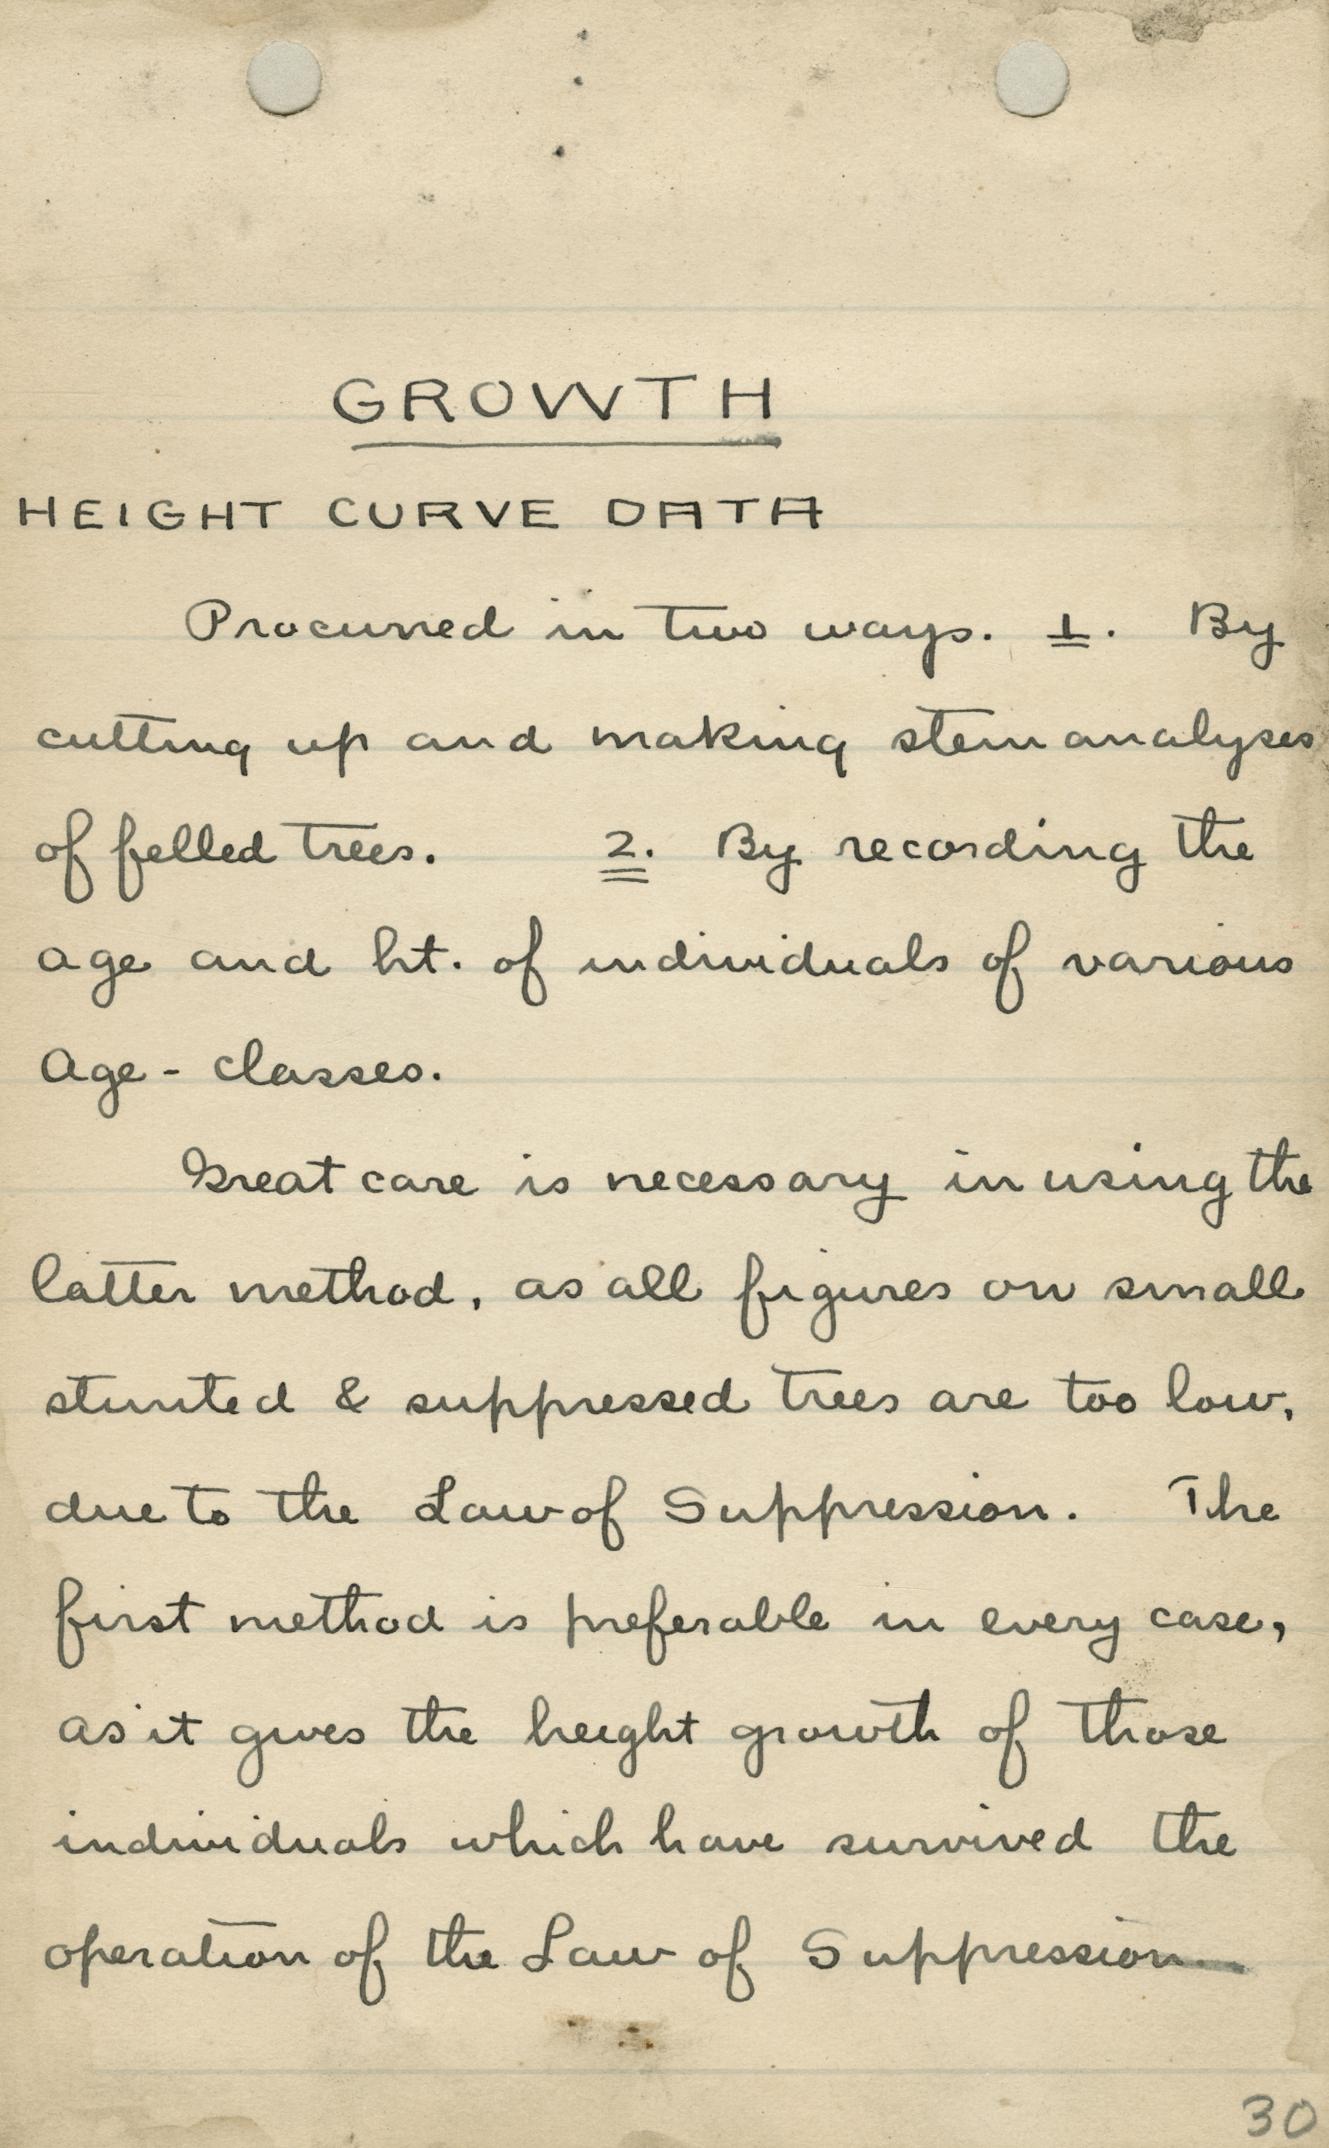 GROWTH
HEIGHT CURVE DATA
Procurred in two ways. 1. By
cutting up and making stem analyses
of felled trees. 2. By recording the
age and ht. of individuals of various
Age - classes.
Great care is necessary in using the
latter method, as all figures on small
stunted & suppressed trees are too low,
due to the Law of Suppression. The
first method is preferable in every case,
as it gives the height growth of those
individuals which have survived the
operation of the Law of Suppression
30